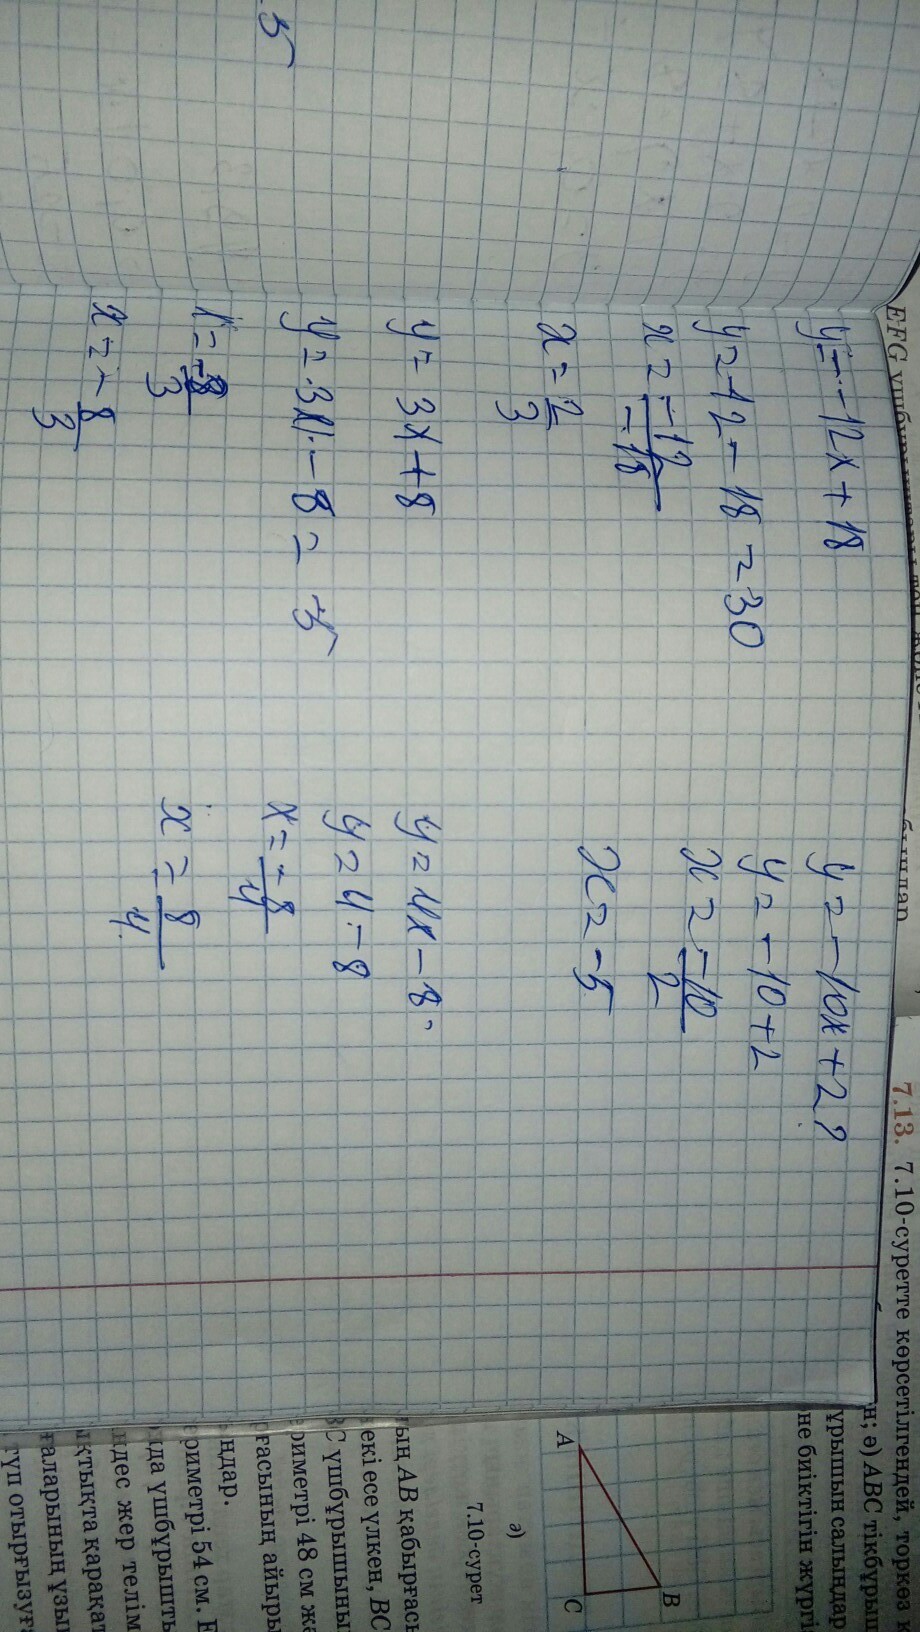 5
y=-12x+18
y=12-18=30
x=-12/-18
x=2/3
y=3x+8
y=3x-8=-5
x=-8/3
x=-8/3
y=-10x+2?
y=-10+2
x=-10/2
x=-5
y=4x-8
y=4-8
x=-8/4
x=8/4
EFG
7.13. 7.10-суретте көрсетілгендей, торкөз
н; ә) ABC тікбұрыш
ұрышын салыңдар
не биіктігін жүргі
A
B
C
ә)
7.10-сурет
ың AB қабырғасы
екі есе үлкен, BC
C үшбұрышының
риметрі 48 см же
ғасының айыры
ңдар.
риметрі 54 см. E
да үшбұрышты
ндес жер телім
ықтықта қарақат
ғаларының ұзын
түп отырғызуға